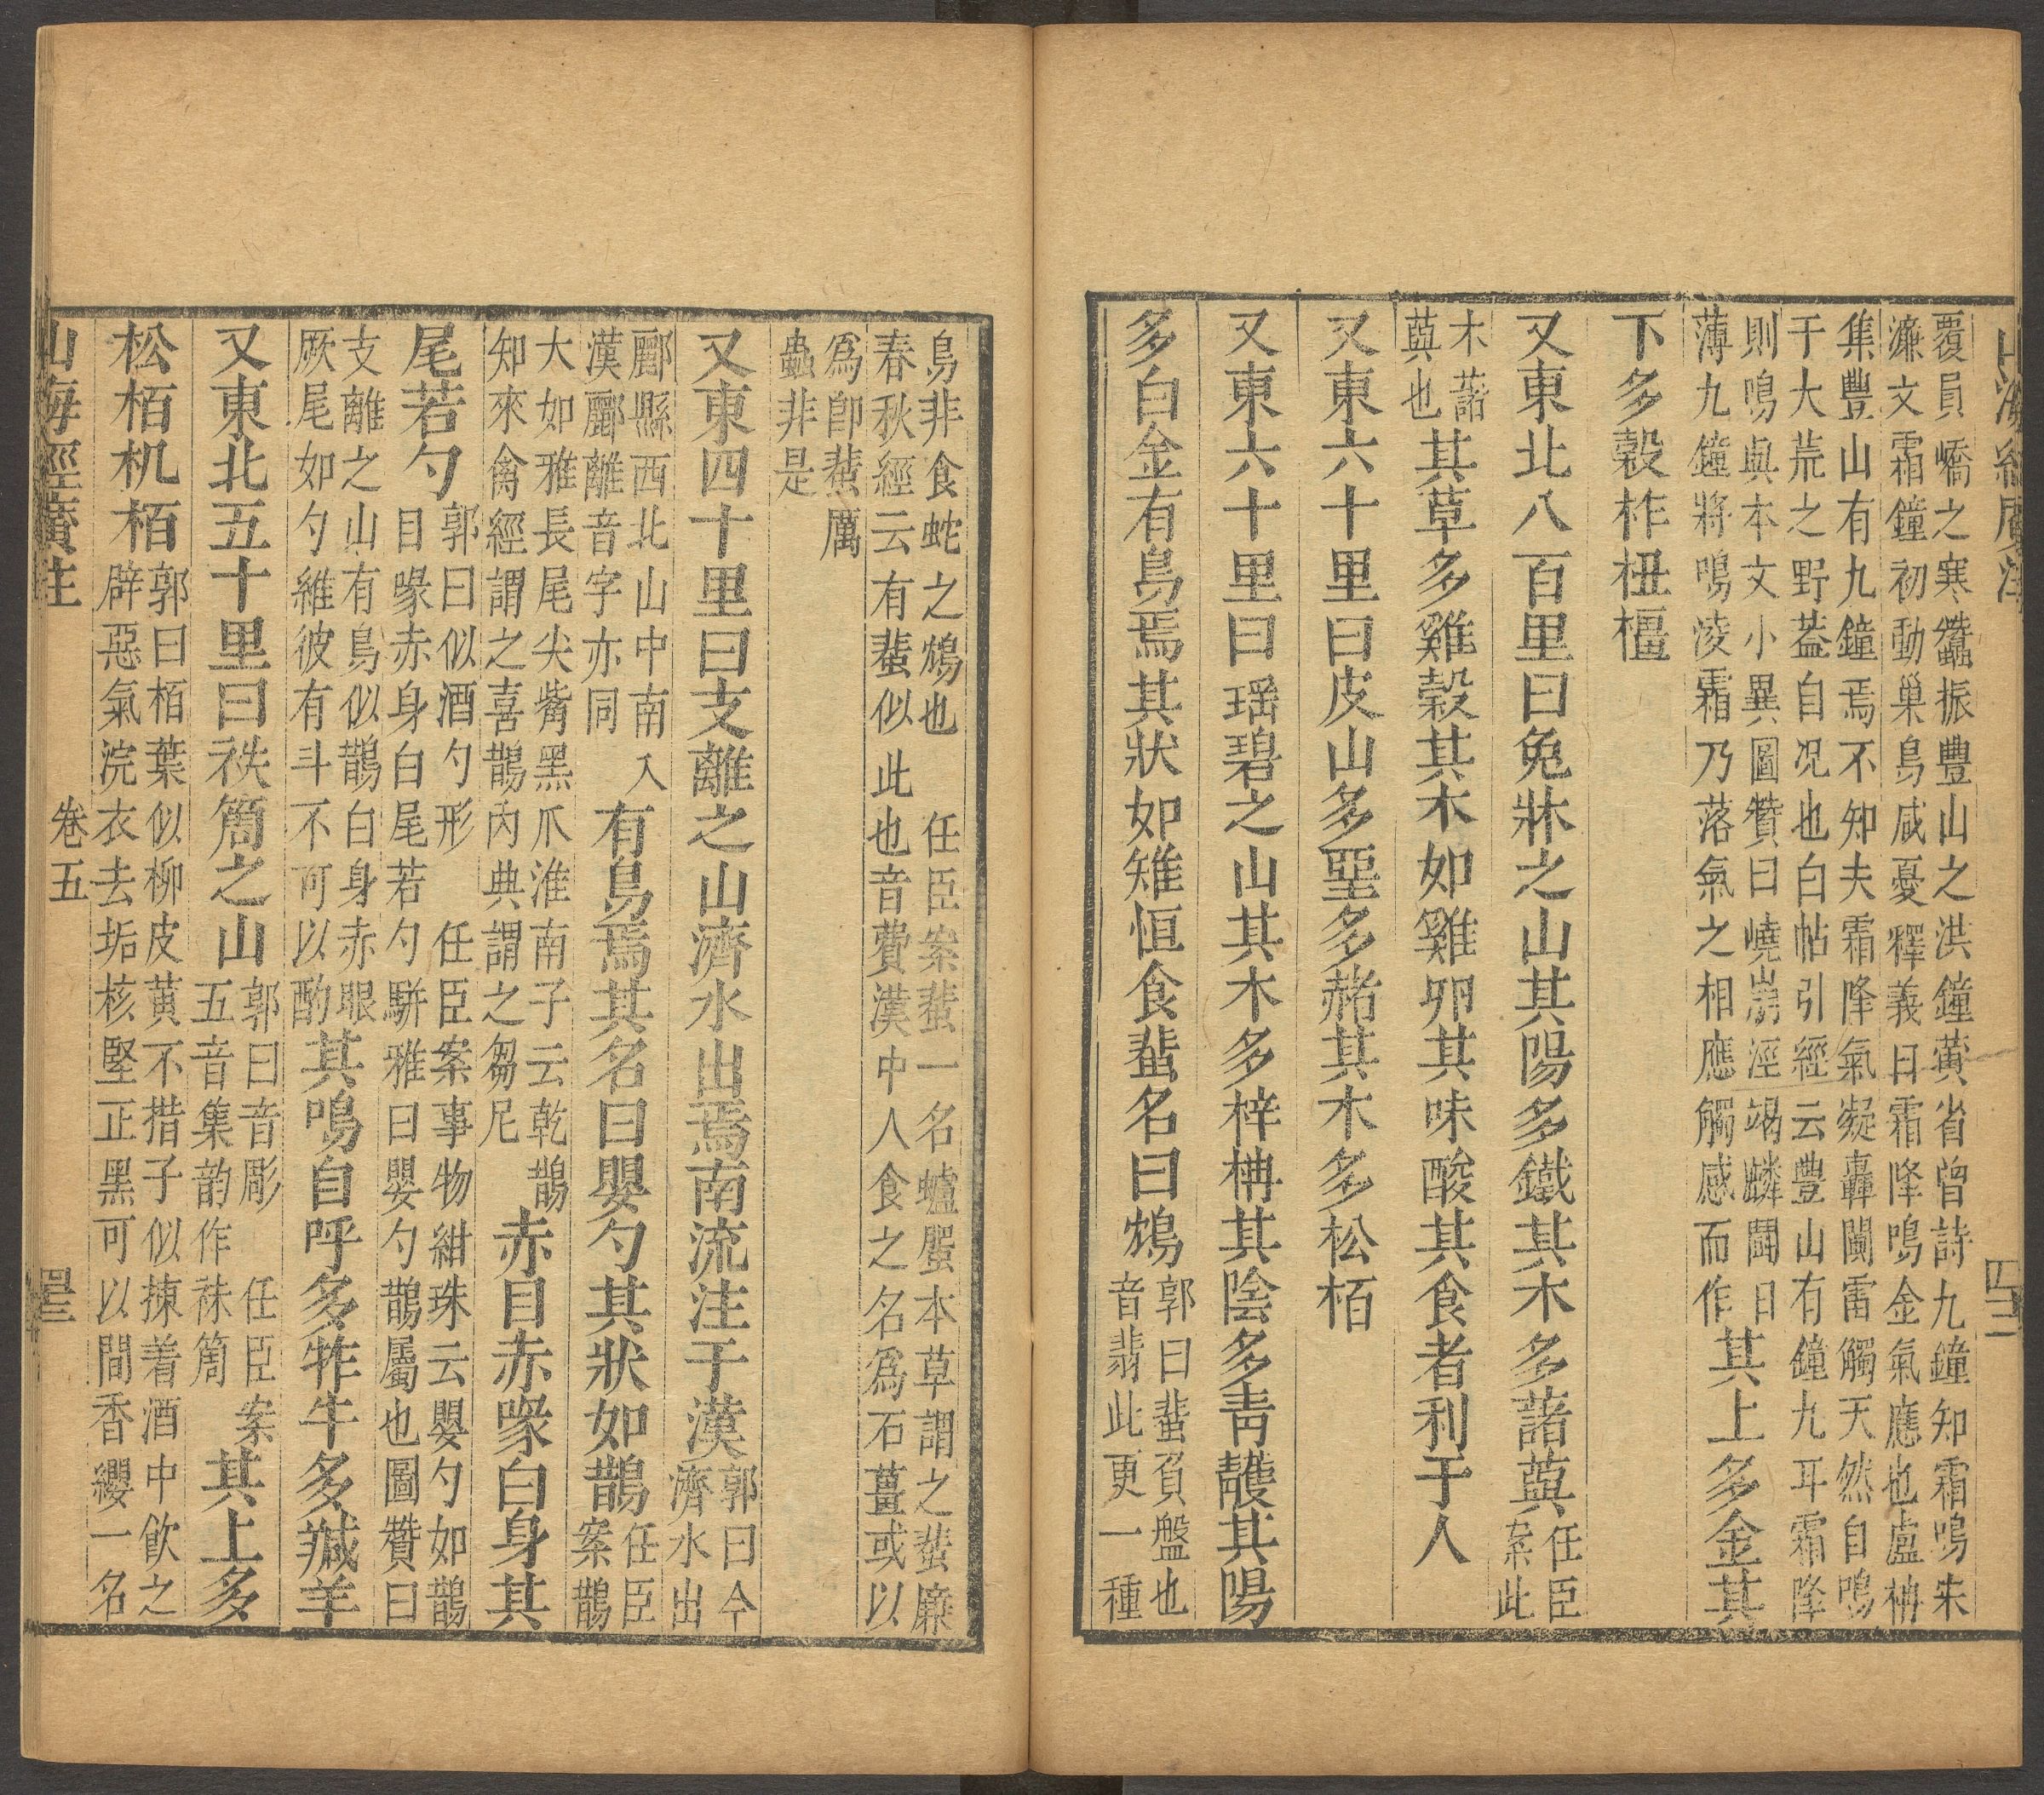 山海經廣注
覆員嶠之寒蠶振豐山之洪鐘黃省曾詩九鐘知霜鳴朱
濂文霜鐘初動巢鳥咸憂釋義曰霜降鳴金氣應也盧柟
集豐山有九鐘焉不知夫霜降氣凝轟闐雷觸天然自鳴
于大荒之野葢自况也白帖引經云豐山有鐘九耳霜降
則鳴與本文小異圖贊曰嶢崩涇竭麟鬭日
薄九鐘將鳴淩霜乃落氣之相應觸感而作
其上多金其
下多穀柞杻橿
又東北八百里曰兔牀之山其陽多鐵其木多藷藇
任臣
案此
木藷
藇也
其草多雞穀其本如雞卵其味酸其食者利于人
又東六十里曰皮山多堊多赭其木多松栢
又東六十里曰瑶碧之山其木多梓柟其陰多青雘其陽
多白金有鳥焉其狀如雉恒食蜚名曰鴆
郭曰蜚負盤也
音翡此更一種
鳥非食蛇之鴆也 任臣案蜚一名蠦蜰本草謂之蜚廉
春秋經云有蜚似此也音費漢中人食之名為石薑或以
為卽蜚厲
蟲非是
又東四十里曰支離之山濟水出焉南流注于漢
郭曰今
濟水出
酈縣西北山中南入
漢酈離音字亦同
有鳥焉其名曰嬰勺其狀如鵲
任臣
案鵲
大如雅長尾尖觜黑爪淮南子云乾鵲
知來禽經謂之喜鵲內典謂之芻尼
赤目赤喙白身其
尾若勺
郭曰似酒勺形 任臣案事物紺珠云嬰勺如鵲
目喙赤身白尾若勺駢雅曰嬰勺鵲屬也圖贊曰
支離之山有鳥似鵲白身赤眼
厥尾如勺維彼有斗不可以酌
其鳴自呼多㸲牛多羬羊
又東北五十里曰祑䈑之山
郭曰音彫 任臣案
五音集韵作祑䈑
其上多
松栢机栢
郭曰栢葉似柳皮黃不措子似揀着酒中飲之
辟惡氣浣衣去垢核堅正黑可以間香纓一名
山海經廣注
卷五